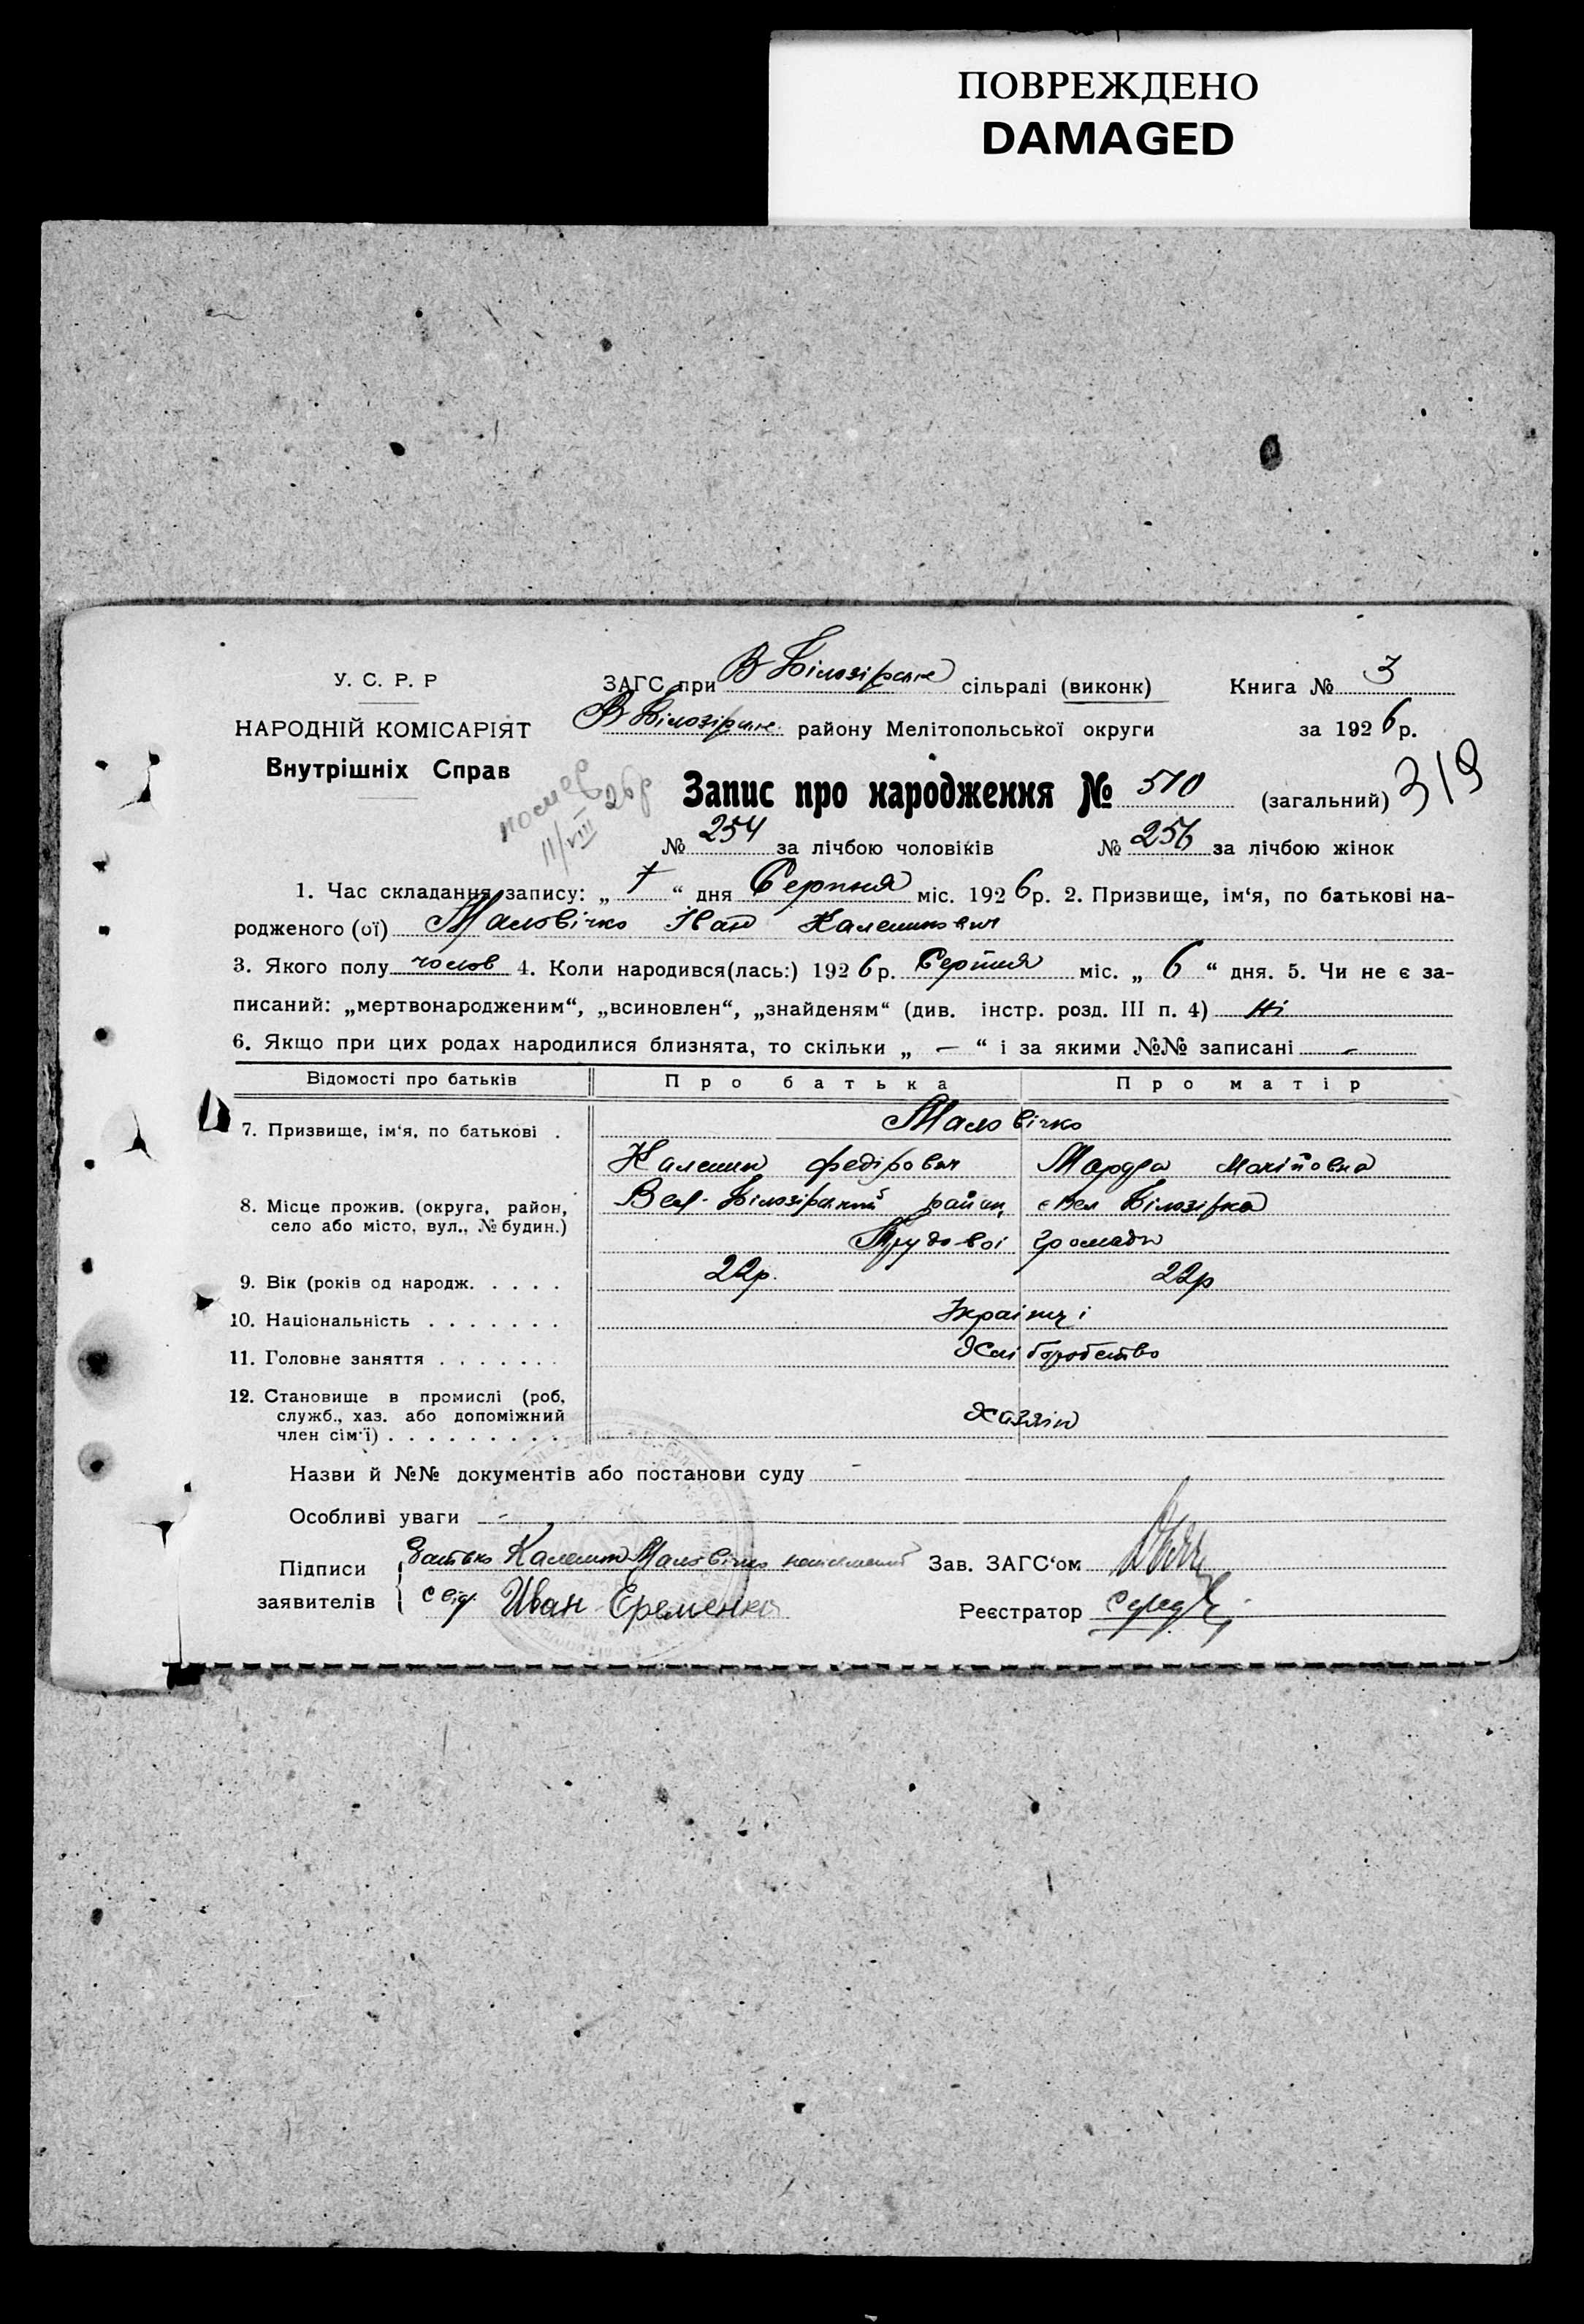 ПОВРЕЖДЕНО
DAMAGED
У. С. Р. Р
НАРОДНІЙ КОМІСАРІЯТ
Внутрішніх Справ
ЗАГС при В Білозірське сільраді (виконк)
Книга № 3
В Білозірське району Мелітопольської округи
за 1926р.
помер
11/VIII 26р
Запис про народження № 510 (загальний) 319
№ 254 за лічбою чоловіків № 256 за лічбою жінок
1. Час складання запису: „ 7 “ дня Серпня міс. 1926р. 2. Призвище, ім‘я, по батькові на-
родженого (ої) Маловічко Іван Калеників
3. Якого полу чолов 4. Коли народився(лась:) 1926р. Серпня міс. „ 6 “ дня. 5. Чи не є за-
писаний: „мертвонародженим“, „всиновлен“, „знайденям“ (див. інстр. розд. III п. 4) Ні
6. Якщо при цих родах народилися близнята, то скільки „ — “ і за якими №№ записані —
Відомості про батьків Про батька Про матір
7. Призвище, ім‘я, по батькові . Маловічко
Каленик Федірович
8. Місце прожив. (округа, район, Вел-Білозірський район с Вел Білозірка
село або місто, вул., № будин.)
Трудової громади
9. Вік (років од народж. . . . . 22р. 22р
10. Національність . . . . . . . Українці
11. Головне заняття . . . . . . . Хліборобство
12. Становище в промислі (роб,
служб., хаз. або допоміжний Хазяїн
член сім‘ї) . . . . . . . . .
Назви й №№ документів або постанови суду —
Особливі уваги —
Підписи
заявителів
батько Каленик Маловічко
свід. Иван Еременко
Зав. ЗАГС‘ом
Реєстратор